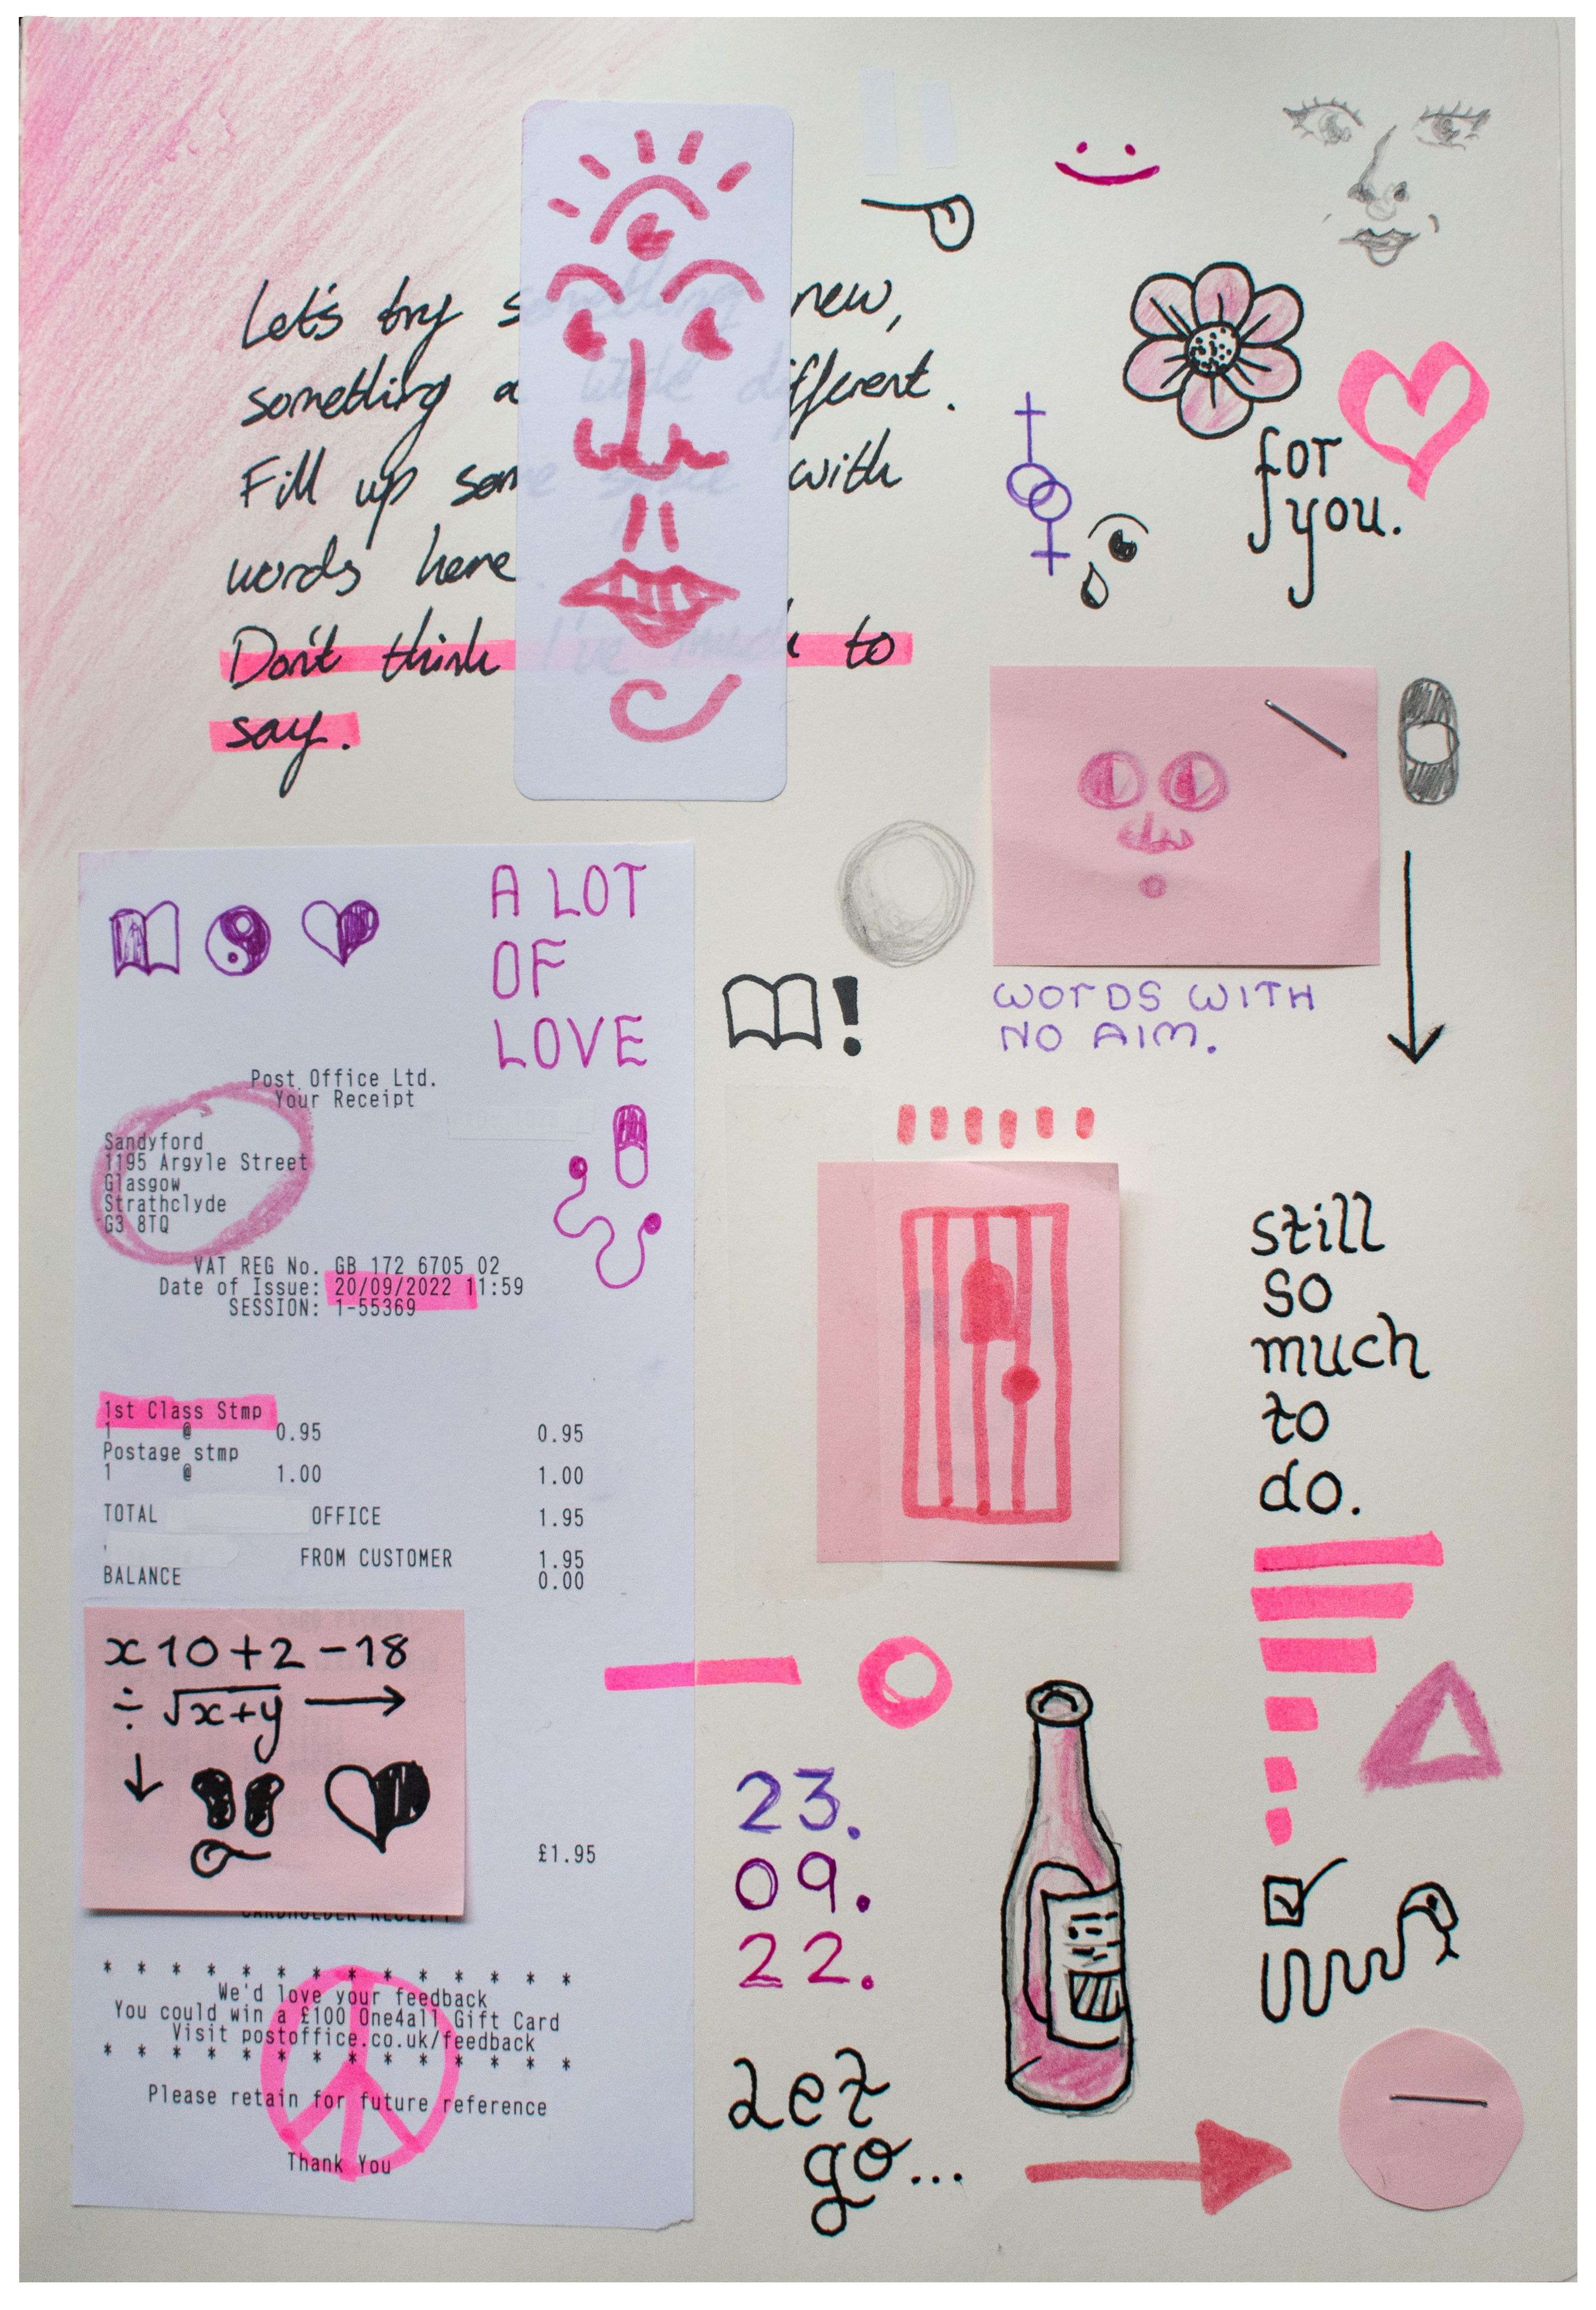 Let's try something new,
something a little different.
Fill up some space with
words here
Don't think I've much to
say.
for
you.
A LOT
OF
LOVE
!
WORDS WITH
NO AIM.
Post Office Ltd.
Your Receipt
Sandyford
1195 Argyle Street
Glasgow
Strathclyde
G3 8TQ
VAT REG No. GB 172 6705 02
Date of Issue: 20/09/2022 11:59
SESSION: 1-55369
1st Class Stmp
1 @ 0.95 0.95
Postage stmp
1 @ 1.00 1.00
TOTAL OFFICE 1.95
FROM CUSTOMER 1.95
BALANCE 0.00
x 10 + 2 - 18
÷ √x+y →
£1.95
CARDHOLDER RECEIPT
* * * * * * * * * * * * * *
We'd love your feedback
You could win a £100 One4all Gift Card
Visit postoffice.co.uk/feedback
* * * * * * * * * * * * * *
Please retain for future reference
Thank You
still
so
much
to
do.
23.
09.
22.
Let
go...